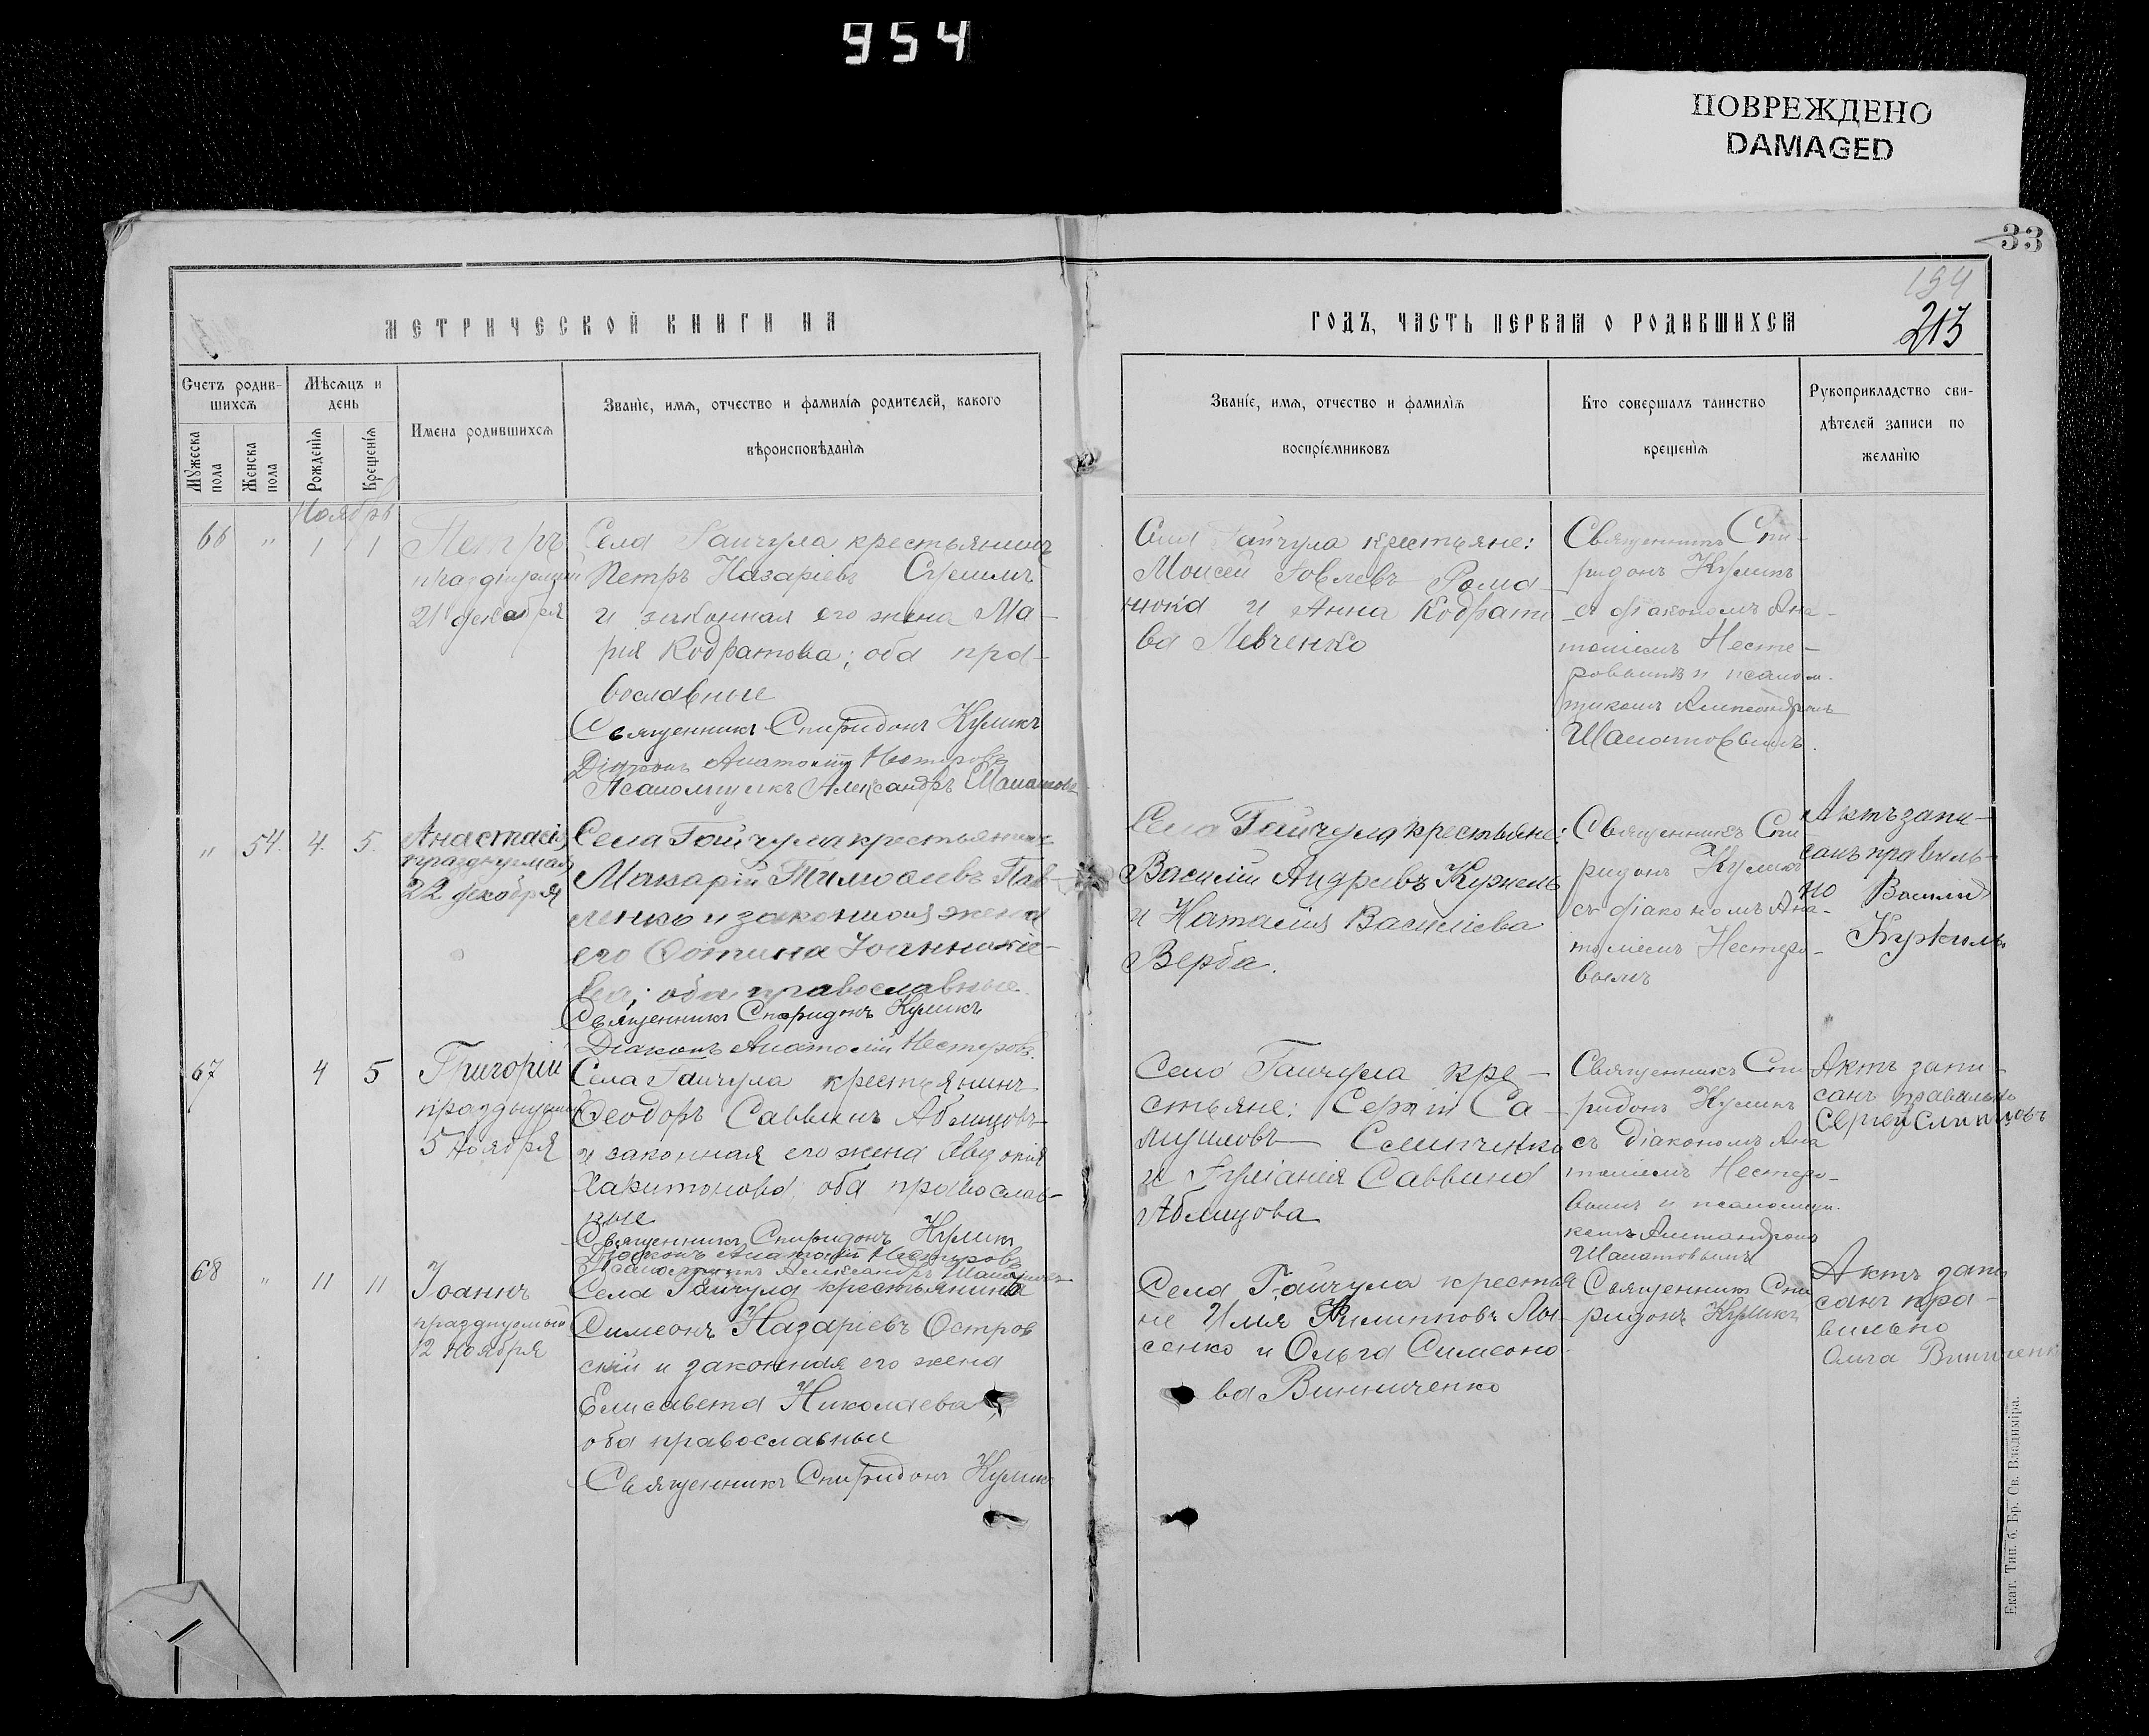 954
ПОВРЕЖДЕНО
DAMAGED
33
194
213
МЕТРИЧЕСКОЙ КНИГИ НА
ГОДЪ, ЧАСТЬ ПЕРВАЯ О РОДИВШИХСЯ
Счетъ родив-
шихся
Мужеска
пола
Женска
пола
Мѣсяцъ и
день
Рожденія
Крещенія
Имена родившихся
Званіе, имя, отчество и фамилія родителей, какого
вѣроисповѣданія
Званіе, имя, отчество и фамилія
воспріемниковъ
Кто совершалъ таинство
крещенія
Рукоприкладство сви-
дѣтелей записи по
желанію
Ноябрь
66 " 1 1
Петръ
празднуемый
21 декабря
Села Гайчула крестьянинъ
Петръ Назаріевъ
и законная его жена Ма-
рія Кодратова; оба пра-
вославные
Священникъ Спиридонъ Куликъ
Діаконъ Анатолій Нестеровъ
Псаломщикъ Александръ
Села Гайчула крестьяне:
Моисей Іовлевъ Рома-
нюка и Анна Кодрати
ва Левченко
Священникъ Спи-
ридонъ Куликъ
съ діакономъ Ана-
толіемъ Несте-
ровымъ и псалом-
щикомъ Александромъ
" 54. 4. 5.
Анастасія
празднуемая
22 декабря
Села Гайчула крестьянинъ
Макарій Тимооеевъ Пав-
ленко и законная жена
его Фотина Іоанникіе-
ва; оба православные.
Священникъ Спиридонъ Куликъ
Діаконъ Анатолій Нестеровъ.
Села Гайчула крестьяне:
Василій Андреевъ Кужель
и Наталія Василіева
Верба.
Священникъ Спи
ридонъ Куликъ
съ діакономъ Ана-
толіемъ Нестеро-
вымъ
Актъ запи-
санъ правиль-
но Василій
Кужель
67 4 5
Григорій
празднуемый
5 Ноября
Села Гайчула крестьянинъ
Феодоръ Саввинъ Аблицовъ
и законная его жена Евдокія
Харитонова, оба православ-
ные
Священникъ Спиридонъ Куликъ
Діаконъ Анатолій Нестеровъ
Псаломщикъ Александръ
Села Гайчула кре-
стьяне: Сергій Са-
муиловъ Слипченко
и Іуліанія Саввина
Аблицова
Священникъ Спи
ридонъ Куликъ
съ діакономъ Ана
толіемъ Нестеро-
вымъ и псаломщи-
комъ Александромъ
Актъ запи-
санъ правильно
Сергей
68 " 11 11
Іоаннъ
празднуемый
12 Ноября
Села Гайчула крестьянинъ
Симеонъ Назаріевъ Остров
скій и законная его жена
Елисавета Николаева
оба православные
Священникъ Спиридонъ Куликъ
Села Гайчула крестья
не Илія Филипповъ Лы-
сенко и Ольга Симеоно-
ва Винниченко
Священникъ Спи
ридонъ Куликъ
Актъ запи
санъ пра-
вильно
Ольга Винниченко
Екат. Тип. б. Бр. Св. Владиміра.